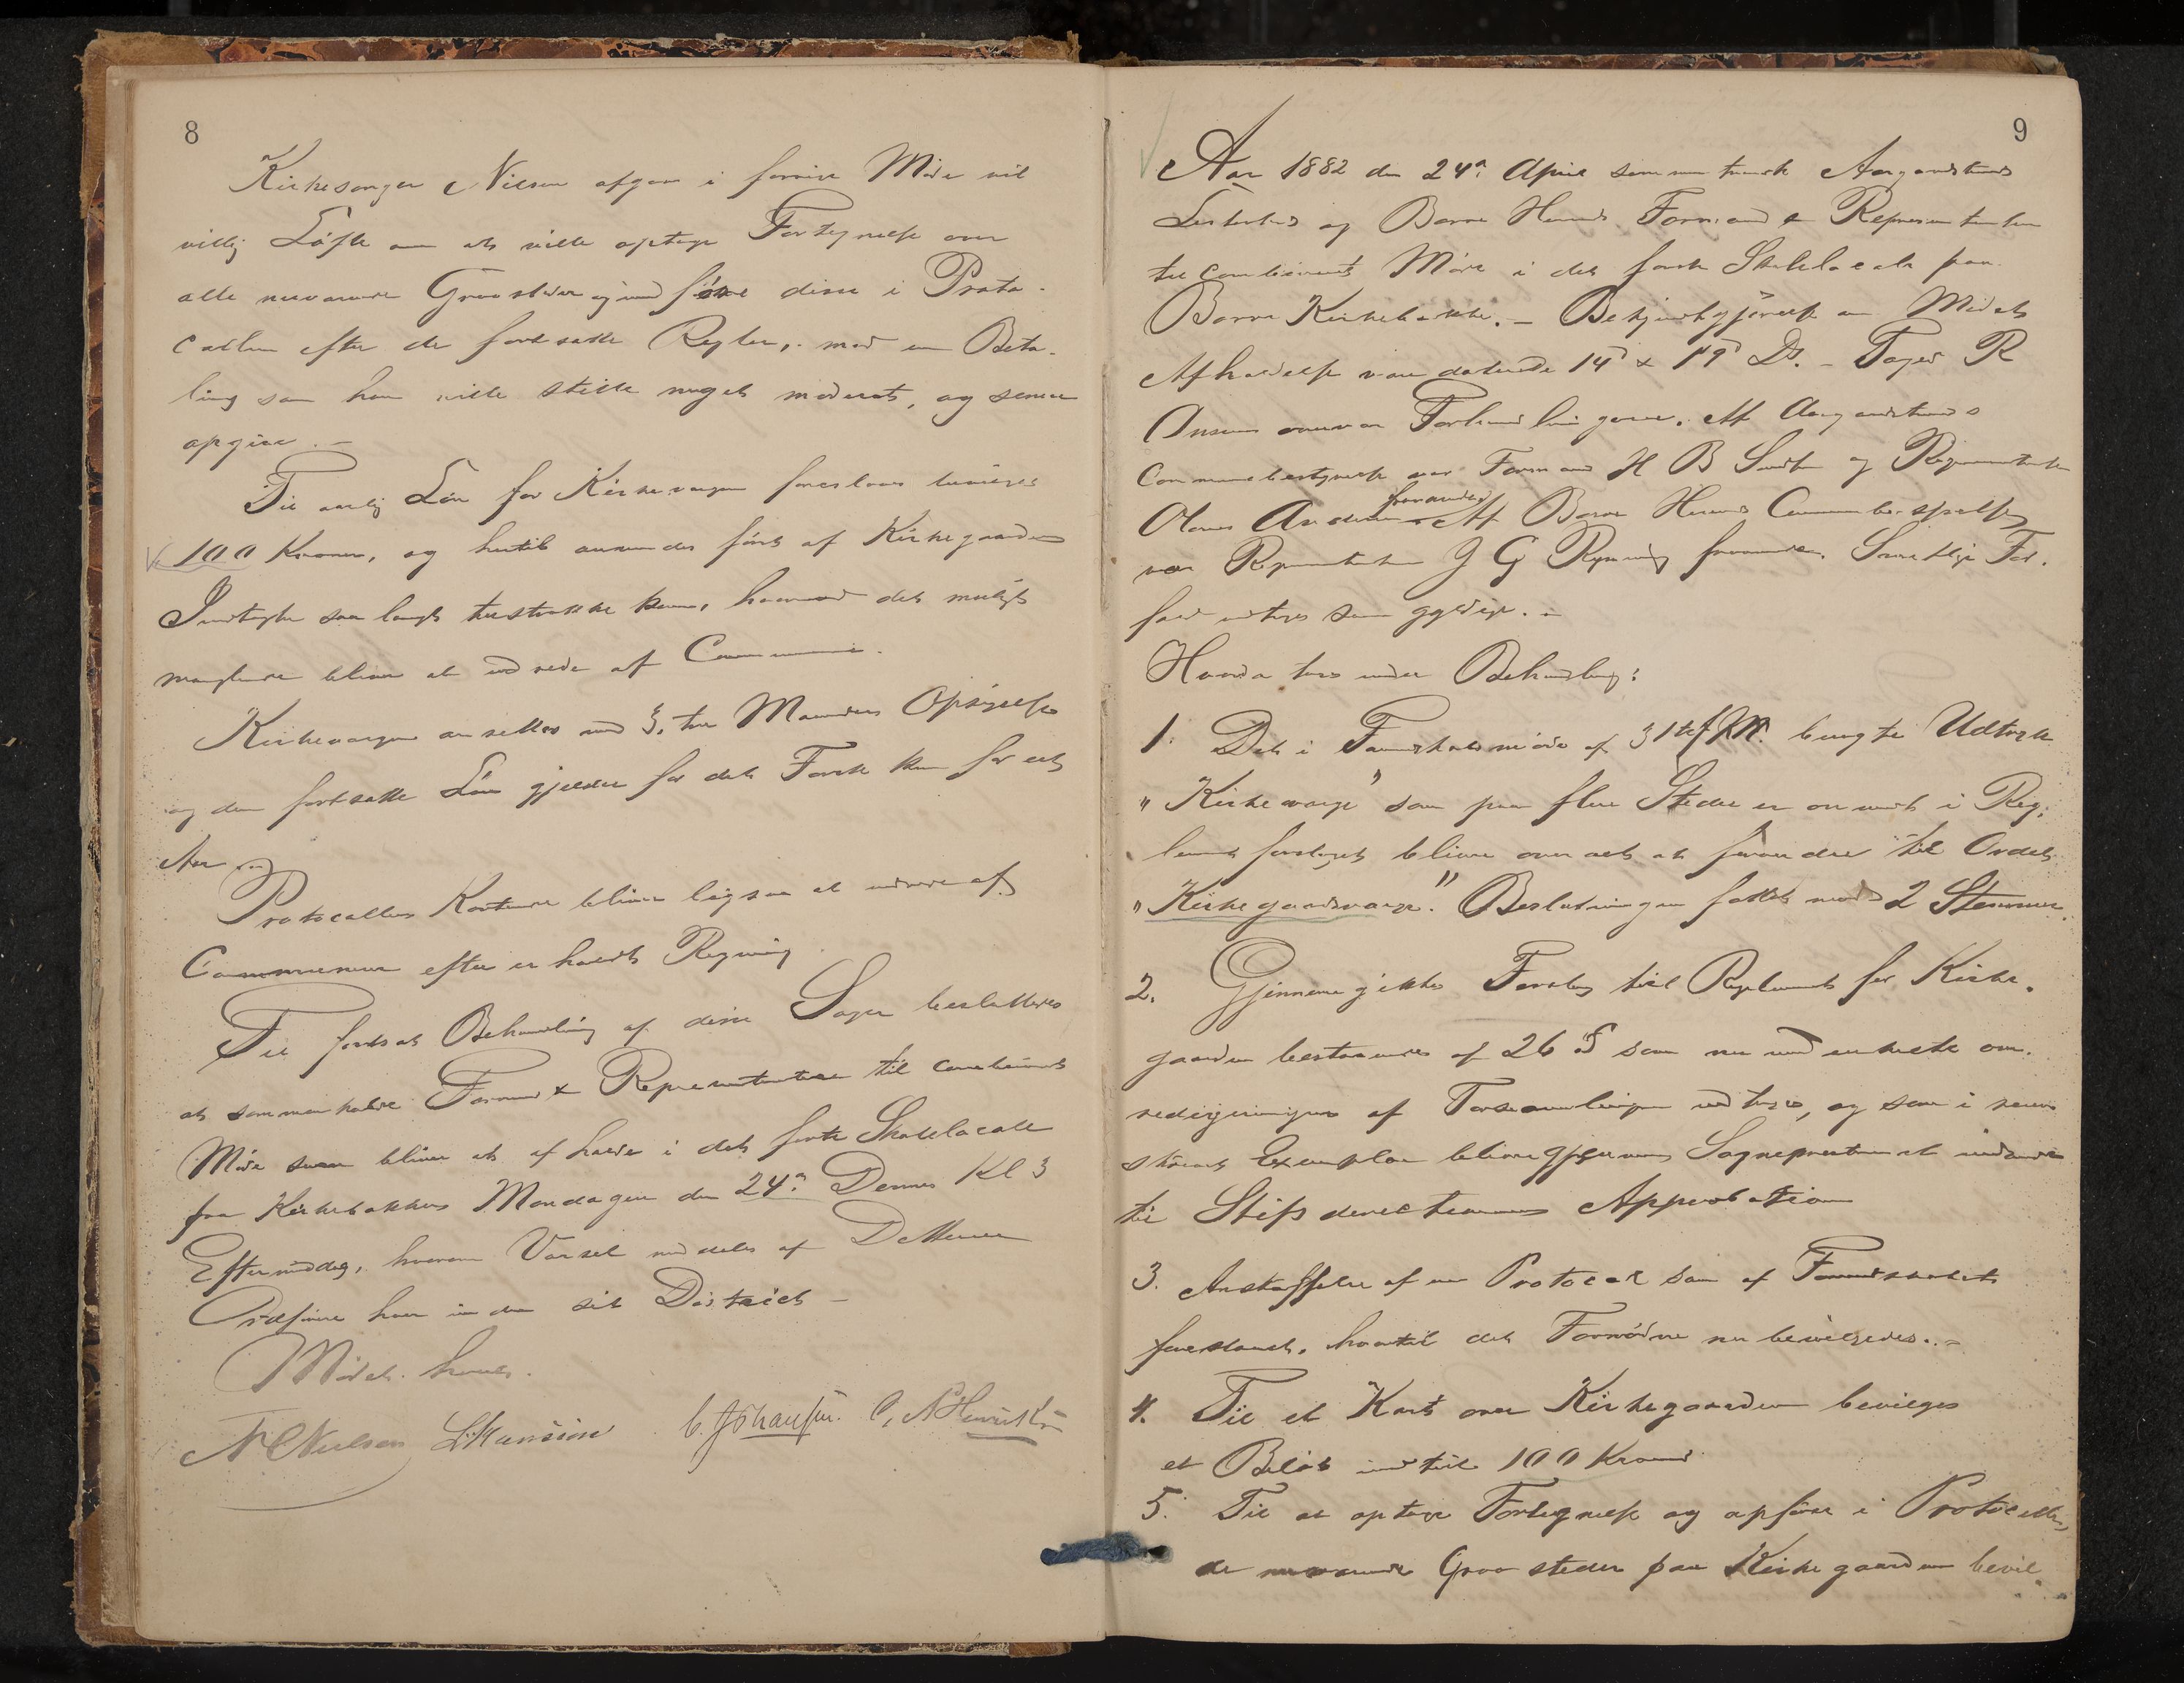 8
Kirkesanger Nilsen afgav i forrige Møde vil
villig Løfte om at ville optage Fortegnelse over
alle nuværende Gravsteder og indføre disse i Proto-
collen efter de fortsatte Regler, mod en Beta-
ling som han vilde stille meget moderat, og senere
opgive. –
Til aarlig Løn for Kirkevargen foreslaaes bevilges
100 Kroner, og hertil anvendes først af Kirkegaardens
Indtægter saa langt tilstrække kan, hvorimod det muligt
manglende bliver at udrede af Communen.
Kirkevargen ansettes med 3, tre Maaneders Opsigelse
og den fortsatte Løn gjælder for det Første kun for et
Aar.
Protocollens Kostende bliver ligesaa at udrede af
Communen efter erholdt Regning.
Til fortsat Behandling af disse Sager besluttedes
at sammenkalde Formænd & Representanter til combineret
Møde som bliver at afholde i det faste Skolelocale
paa Kirkebakken Mandagen den 24de Dennes Kl 3
Eftermiddag, hvorom Varsel meddeles af
Ordførere hver inden sit District –
Mødet hævet.
N C Nielsen L. Hansen C. Johansen. C. N Henriksen
9
Aar 1882 den 24de April sammentraadte Aasgaardstrands
Ladesteds og Borre Herreds Formænd & Representanter
til combineret Møde i det faste Skolelocale paa
Borre Kirkebakke. – Bekjendtgjørelse om Mødets
Afholdelse var daterede 14d & 19d Ds. – Foged R
Ansum overvar Forhandlingerne. Af Aasgaardstrands
Communebestyrelse var Formand H B Smith og Representanten
Olaus Andersen fraværende. Af Borre Herreds Communebestyrelse
var Representanten J G Rynning fraværende. Samtlige For-
fald antages som gyldige. –
Hvorda toges under Behandling:
1. Det i Formandskabsmøde af 31te f. M. brugte Udtryk
" Kirkevarge" som paa flere Steder er anvendt i Reg-
lements forslaget bliver overalt at forandre til Ordet
"Kirkegaardsvarge." Beslutningen fattet mod 2 Stemmer.
2. Gjennemgikkes Forslag til Reglement for Kirke-
gaarden bestaaende af 26 § som nu med enkelte om-
redigeringer af Forsamlingen vedtoges, og som i
Exemplar bliver gjennem Sognepræsten at indsende
til Stifsdirectionens Approbation
3. Anskaffelse af en Protocol som af Formandskabet
foreslaaet, hvortil det Fornødne nu bevilgedes. –
4. Til et Kart over Kirkegaarden bevilges
et Beløb indtil 100 Kroner
5. Til at optage Fortegnelse og opføre i Protocollen
de nuværende Gravsteder paa Kirkegaarden bevil-